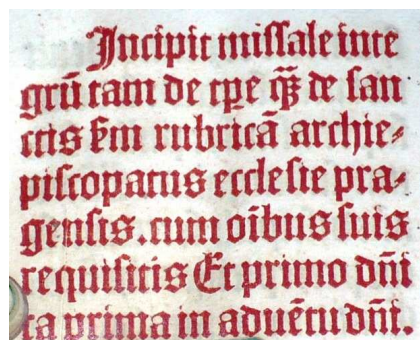 Incipit missale inte
grū tam de tp̄e qz̄ de san
ctis s̄m rubricā archie⸗
piscopatus ecclesie pra⸗
gensis. cum oībus suis
requisitis Et primo dn̄i
ca prima in aduētu dn̄i.